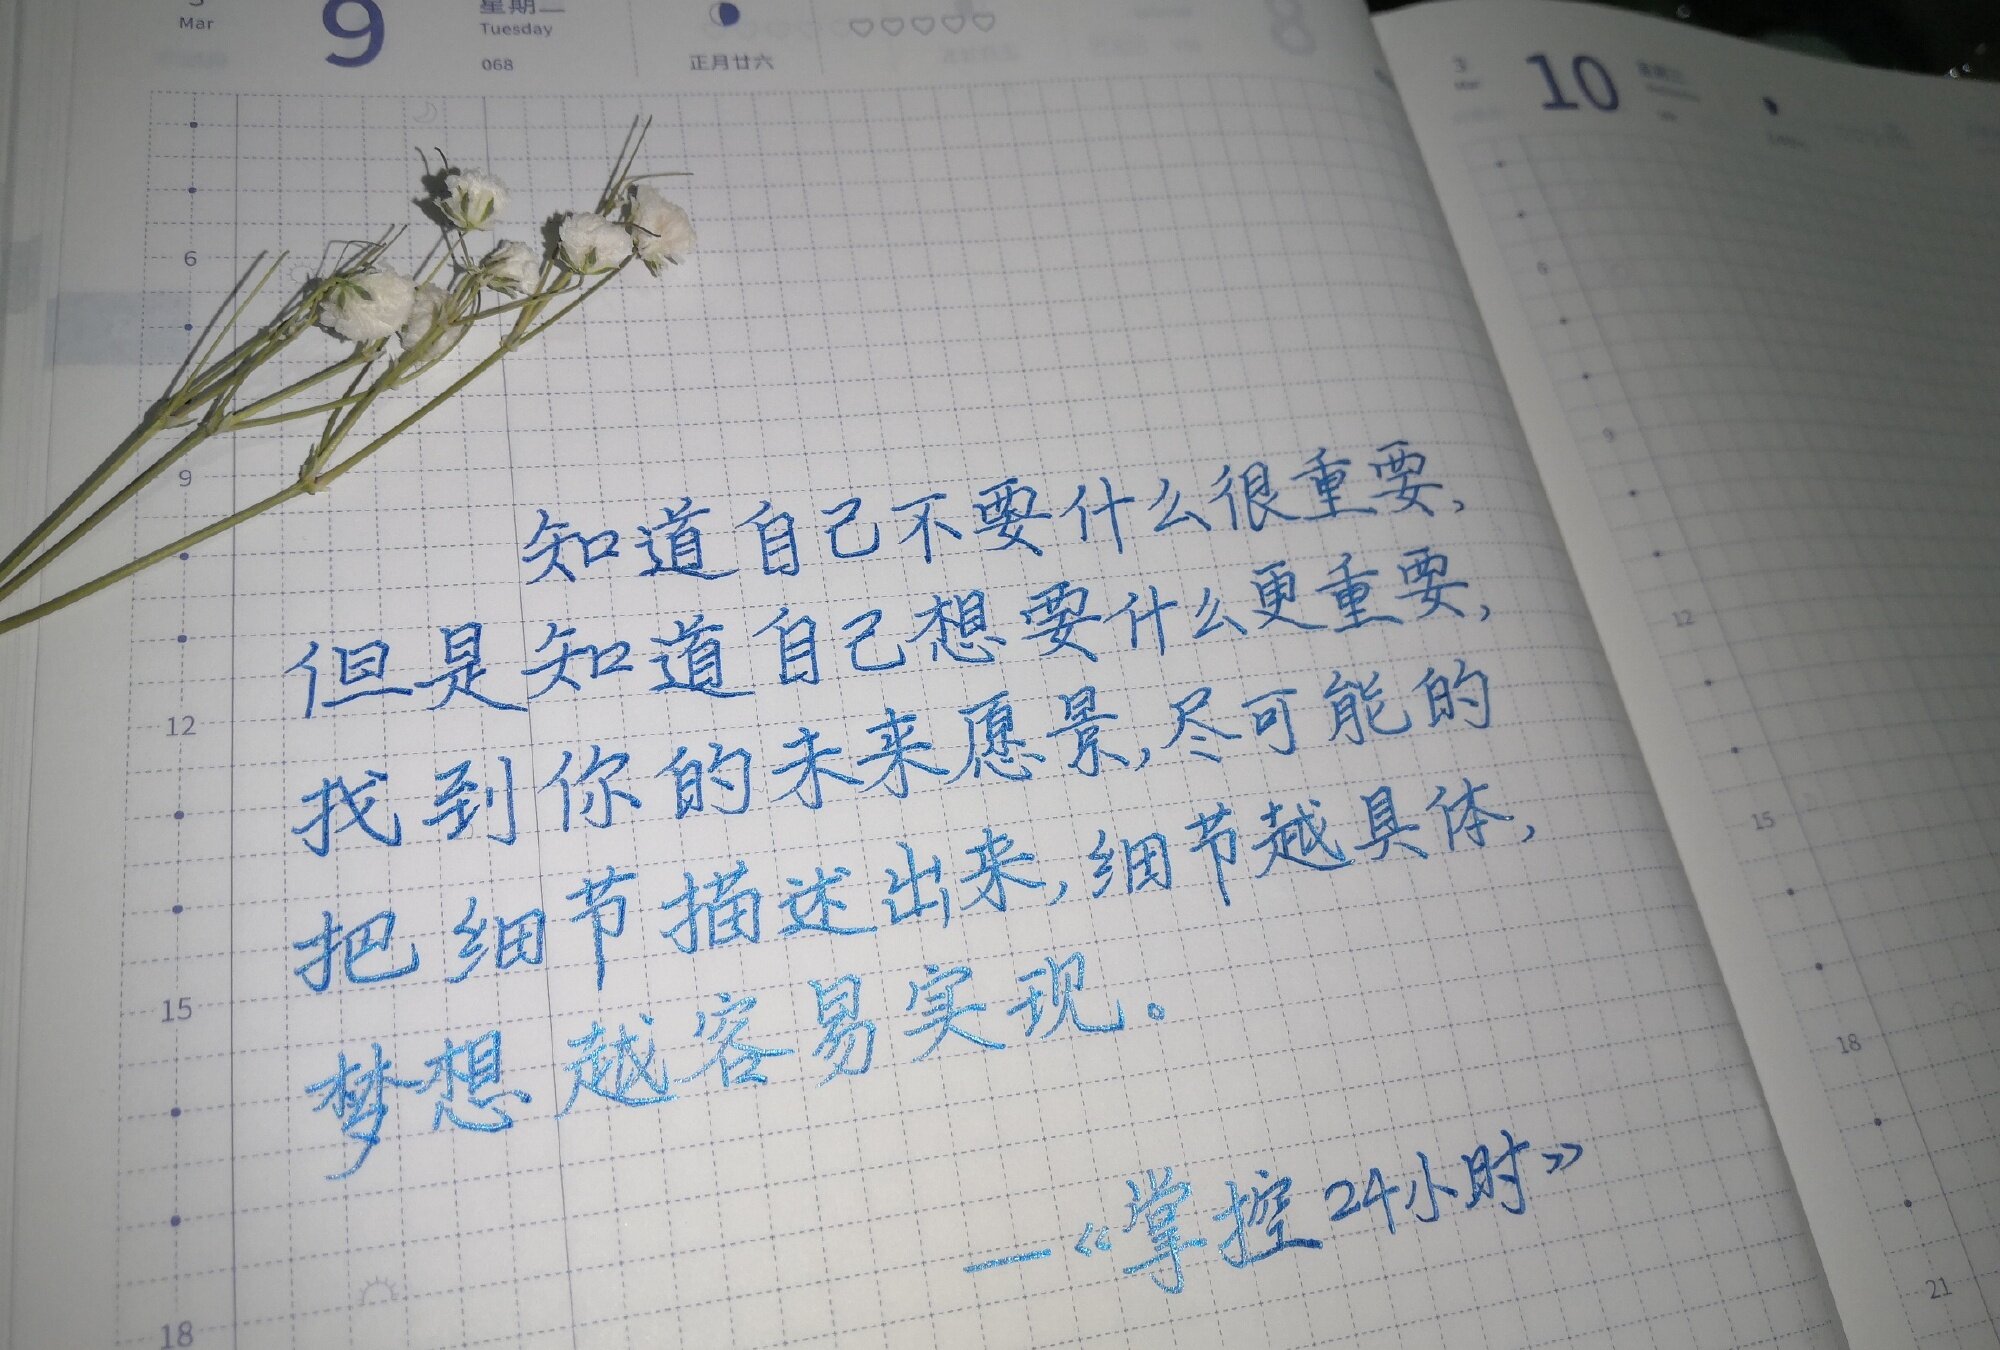 3
Mar
9
星期二
Tuesday
068
正月廿六
3
10
6
9
12
15
18
知道自己不要什么很重要,
但是知道自己想要什么更重要,
找到你的未来愿景,尽可能的
把细节描述出来,细节越具体,
梦想越容易实现。
—《掌控24小时》
6
9
12
15
18
21